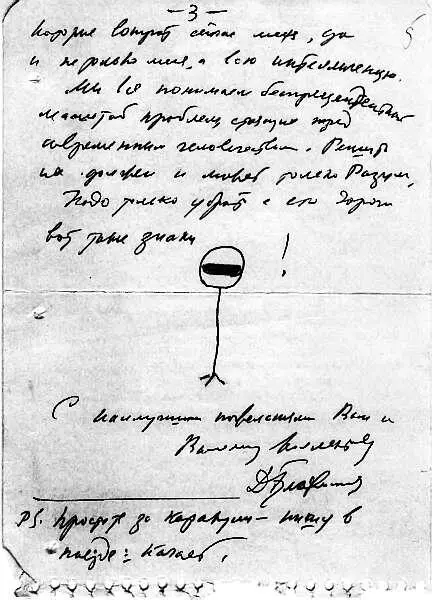 - 3 -
которые волнуют сейчас меня, да
и не только меня, а всю интеллигенцию.
Мы все понимаем беспрецедентный
масштаб проблем стоящие перед
современным человечеством. Решить
их должен и может только Разум.
Надо только убрать с его дороги
вот такие знаки !
С наилучшими пожеланиями Вам и
Вашему коллективу
PS. Простите за каракули - пишу в
поезде: качает.